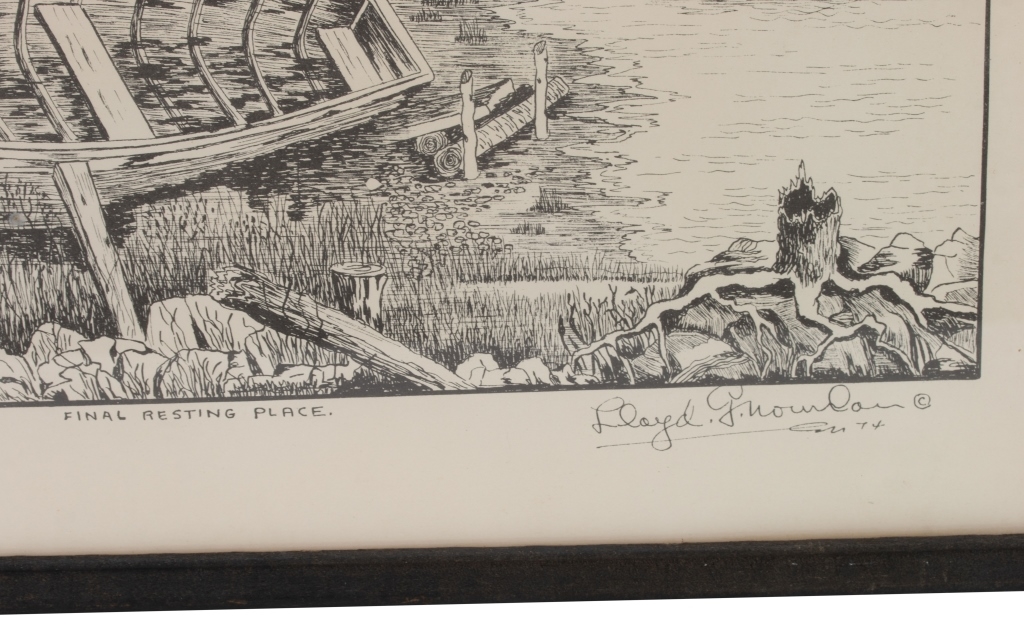 FINAL RESTING PLACE.
Lloyd. G. Nowlan ©
74